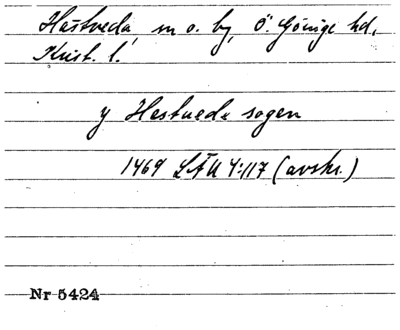 Hästveda, sn o. by, Ö. Göinge hd,
Krist. l.
y Hestuede sogen
1469 LÄU 4:117 (avskr.)
Nr 5424